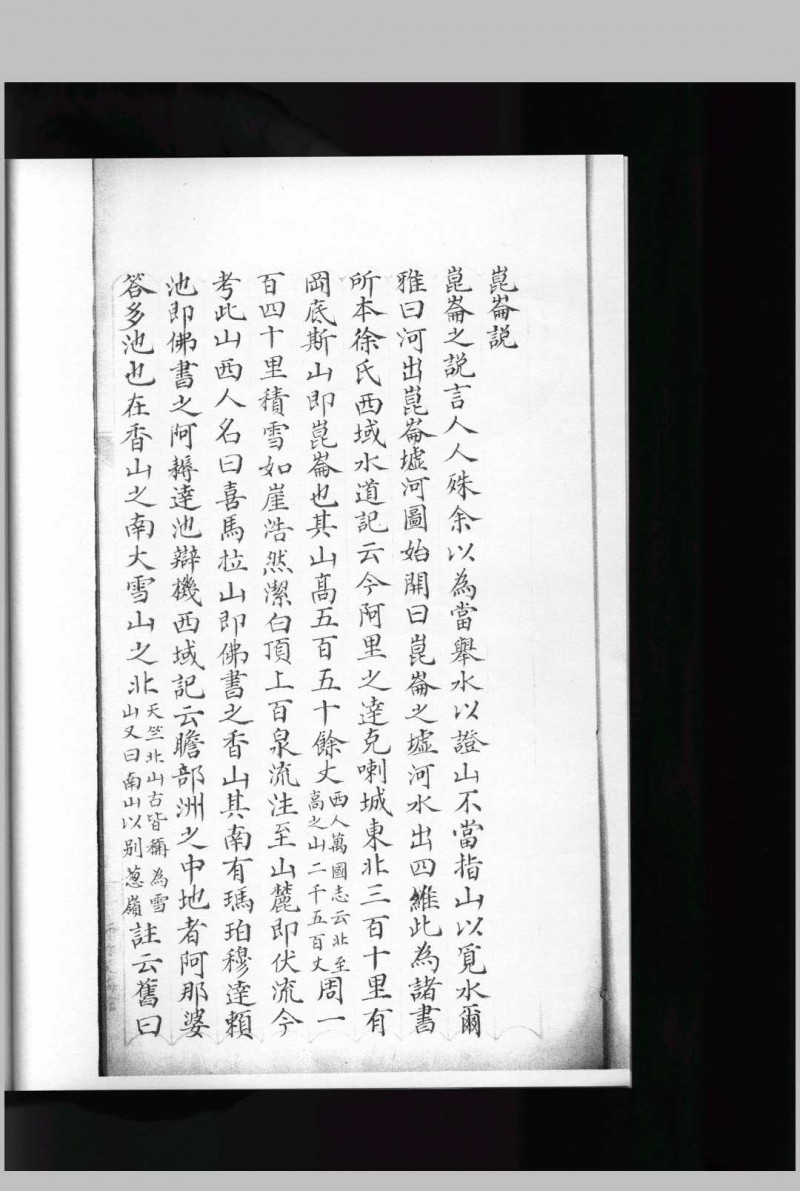 崑崙説
崑崙之説言人人殊余以為當舉水以證山不當指山以覓水爾
雅曰河出崑崙墟河圖始開曰崑崙之墟河水出四維此為諸書
所本徐氏西域水道記云今阿里之達克喇城東北三百十里有
岡底斯山即崑崙也其山高五百五十餘丈西人萬國志云北至高之山二千五百丈周一
百四十里積雪如崖浩然潔白頂上百泉流注至山麓即伏流今
考此山西人名曰喜馬拉山即佛書之香山其南有瑪珀穆達賴
池即佛書之阿耨達池辯機西域記云瞻部洲之中地者阿那婆
答多池也在香山之南大雪山之北天竺北山古皆稱為雪山又曰南山以别蔥嶺註云舊曰